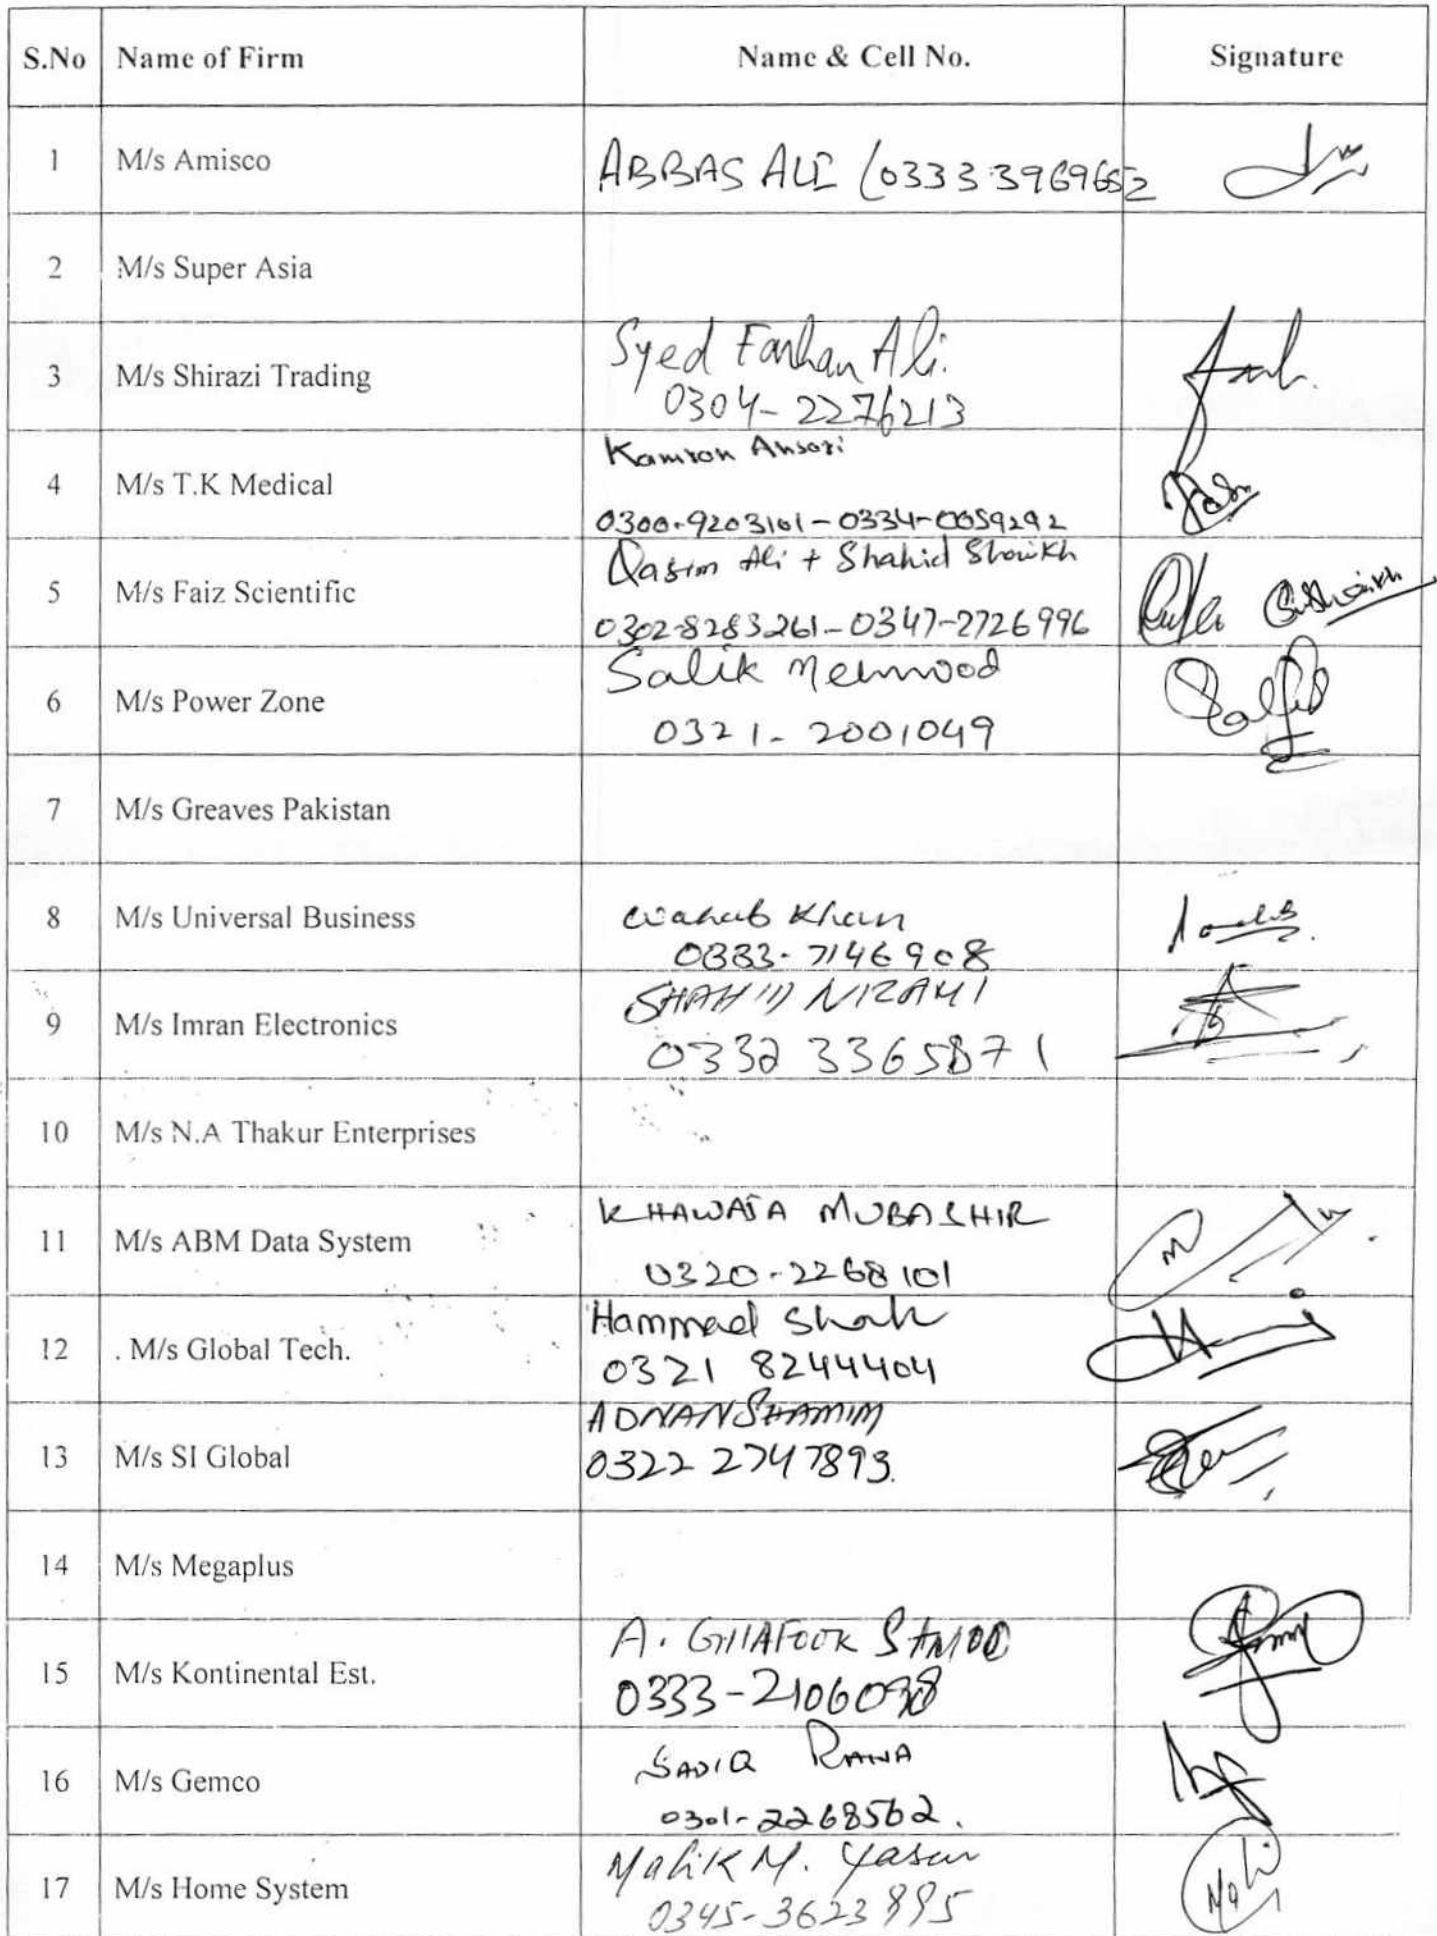 S.No Name of Firm Name & Cell No. Signature
1 M/s Amisco ABBAS ALI (0333 3969652
2 M/s Super Asia
3 M/s Shirazi Trading Syed Farhan Ali.
0304-2276213
4 M/s T.K Medical Kamran Ansari
0300-9203101-0334-0059292
5 M/s Faiz Scientific Qasim Ali + Shahid Shaikh
0302-8283261-0347-2726996
6 M/s Power Zone Salik Mehmood
0321-2001049
7 M/s Greaves Pakistan
8 M/s Universal Business Wahab Khan
0333-7146908
9 M/s Imran Electronics SHAHID NIZAMI
0332 3365871
10 M/s N.A Thakur Enterprises
11 M/s ABM Data System KHAWAJA MUBASHIR
0320-2268101
12 . M/s Global Tech. Hammad Shah
0321 8244404
13 M/s SI Global ADNAN SHAMIM
0322 2747893.
14 M/s Megaplus
15 M/s Kontinental Est. A. GHAFOOR
16 M/s Gemco SADIQ RANA
0301-2268562.
17 M/s Home System Malik M. Yasin
0345-3623895